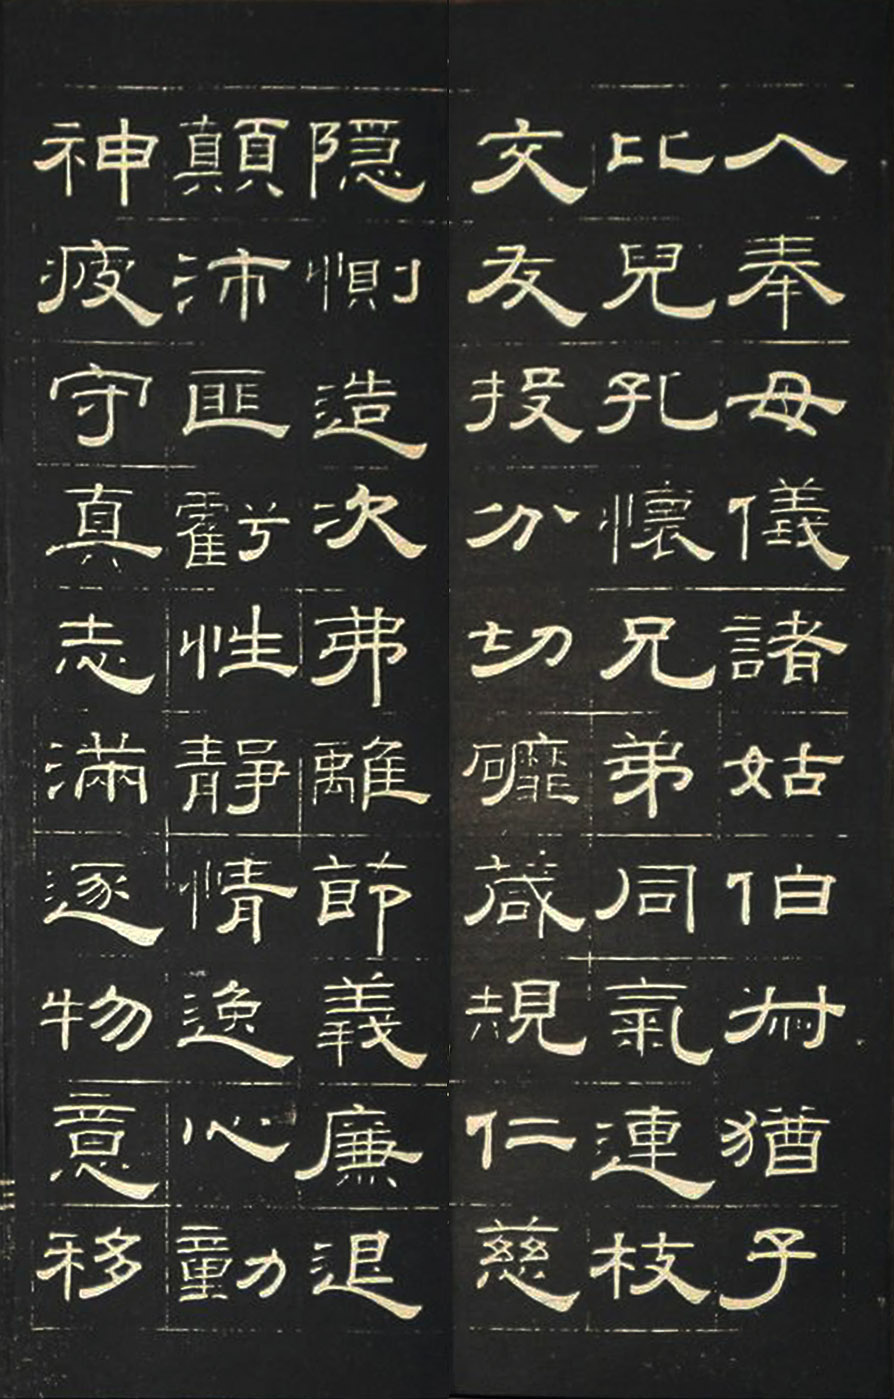 入奉母儀諸姑伯叔猶子
比兒孔懷兄弟同氣連枝
交友投分切磨葴規仁慈
隱惻造次弗離節義廉退
顛沛匪虧性靜情逸心動
神疲守真志滿逐物意移